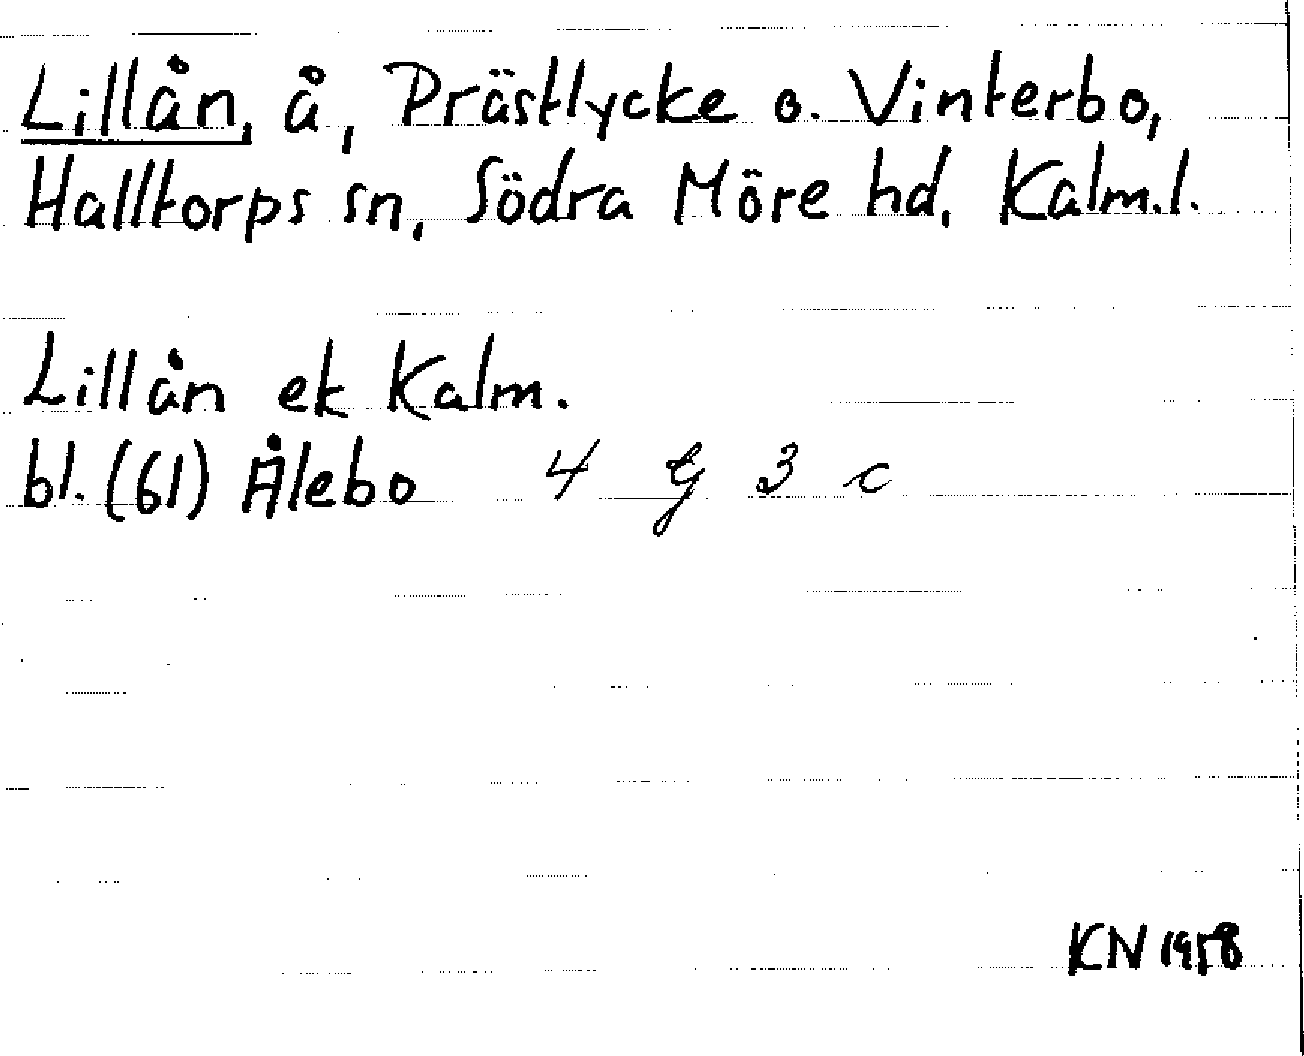 Lillån, å, Prästlycke o. Vinterbo,
Halltorps sn, Södra Möre hd, Kalm.l.
Lillån ek Kalm.
bl. (61) Ålebo 4 G 3 c
KN 1958